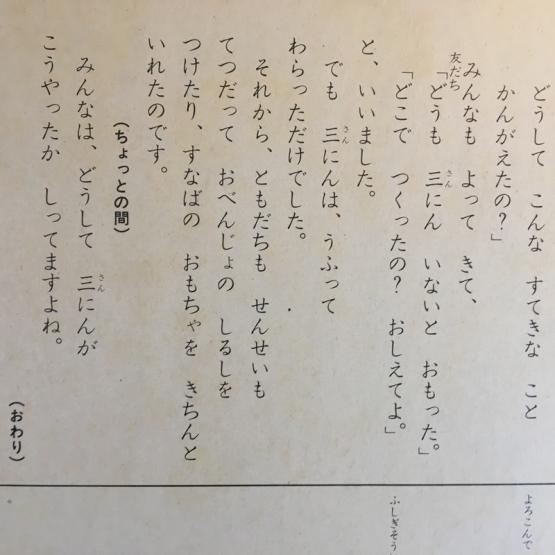 どうして こんな すてきな こと
かんがえたの？」
友だち
みんなも よって きて、
「どうも 三にん いないと おもった。」
さん
「どこで つくったの？ おしえてよ。」
と、いいました。
でも 三にんは、うふって
さん
わらっただけでした。
それから、ともだちも せんせいも
てつだって おべんじょの しるしを
つけたり、すなばの おもちゃを きちんと
いれたのです。
（ちょっとの間）
みんなは、どうして 三にんが
さん
こうやったか しってますよね。
（おわり）
よろこんで
ふしぎそう